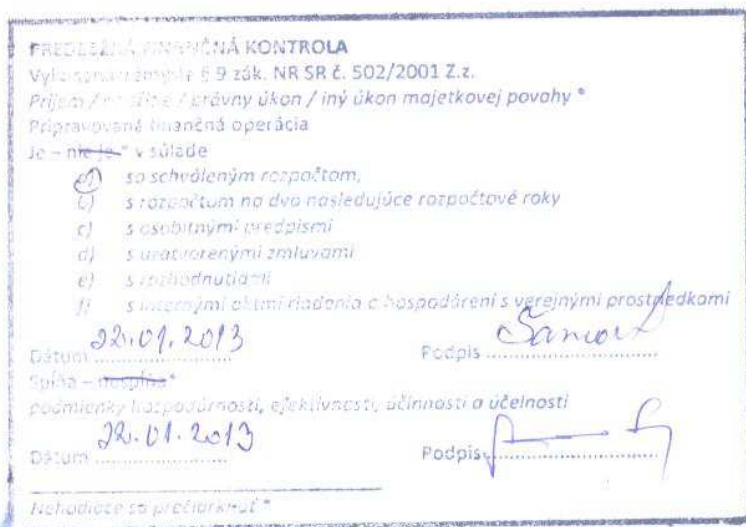 PREDBEŽNÁ FINANČNÁ KONTROLA
Vykonaná v zmysle § 9 zák. NR SR č. 502/2001 Z.z.
Príjem / / právny úkon / iný úkon majetkovej povahy *
Pripravovaná finančná operácia
Je – nie je * v súlade
a) so schváleným rozpočtom,
b) s rozpočtom na dva nasledujúce rozpočtové roky
c) s osobitnými predpismi
d) s uzatvorenými zmluvami
e) s rozhodnutiami
f) s internými aktmi riadenia o hospodárení s verejnými prostriedkami
Dátum 22.01.2013 Podpis
Spĺňa – nespĺňa*
podmienky hospodárnosti, efektívnosti, účinnosti a účelnosti
Dátum 22.01.2013 Podpis
Nehodiace sa prečiarknuť *